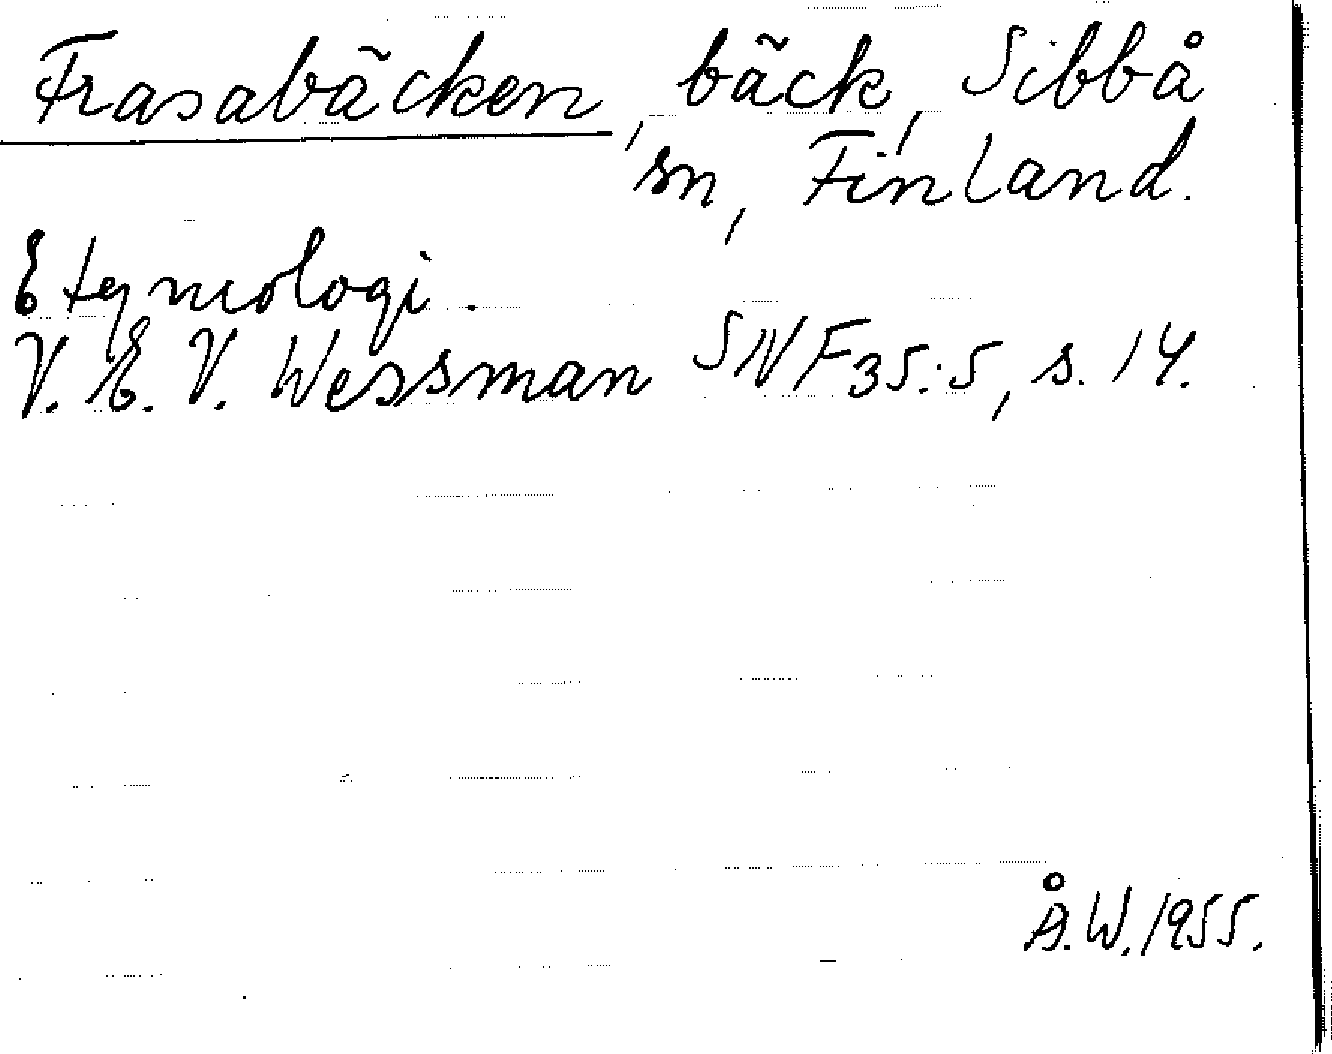 Frasabäcken, bäck, Sibbå
sn, Finland.
Etymologi.
V. E. V. Wessman SNF 35:5, s. 14.
Å.W. 1955.